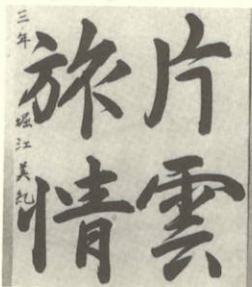 片雲
旅情
三年 堀江美紀